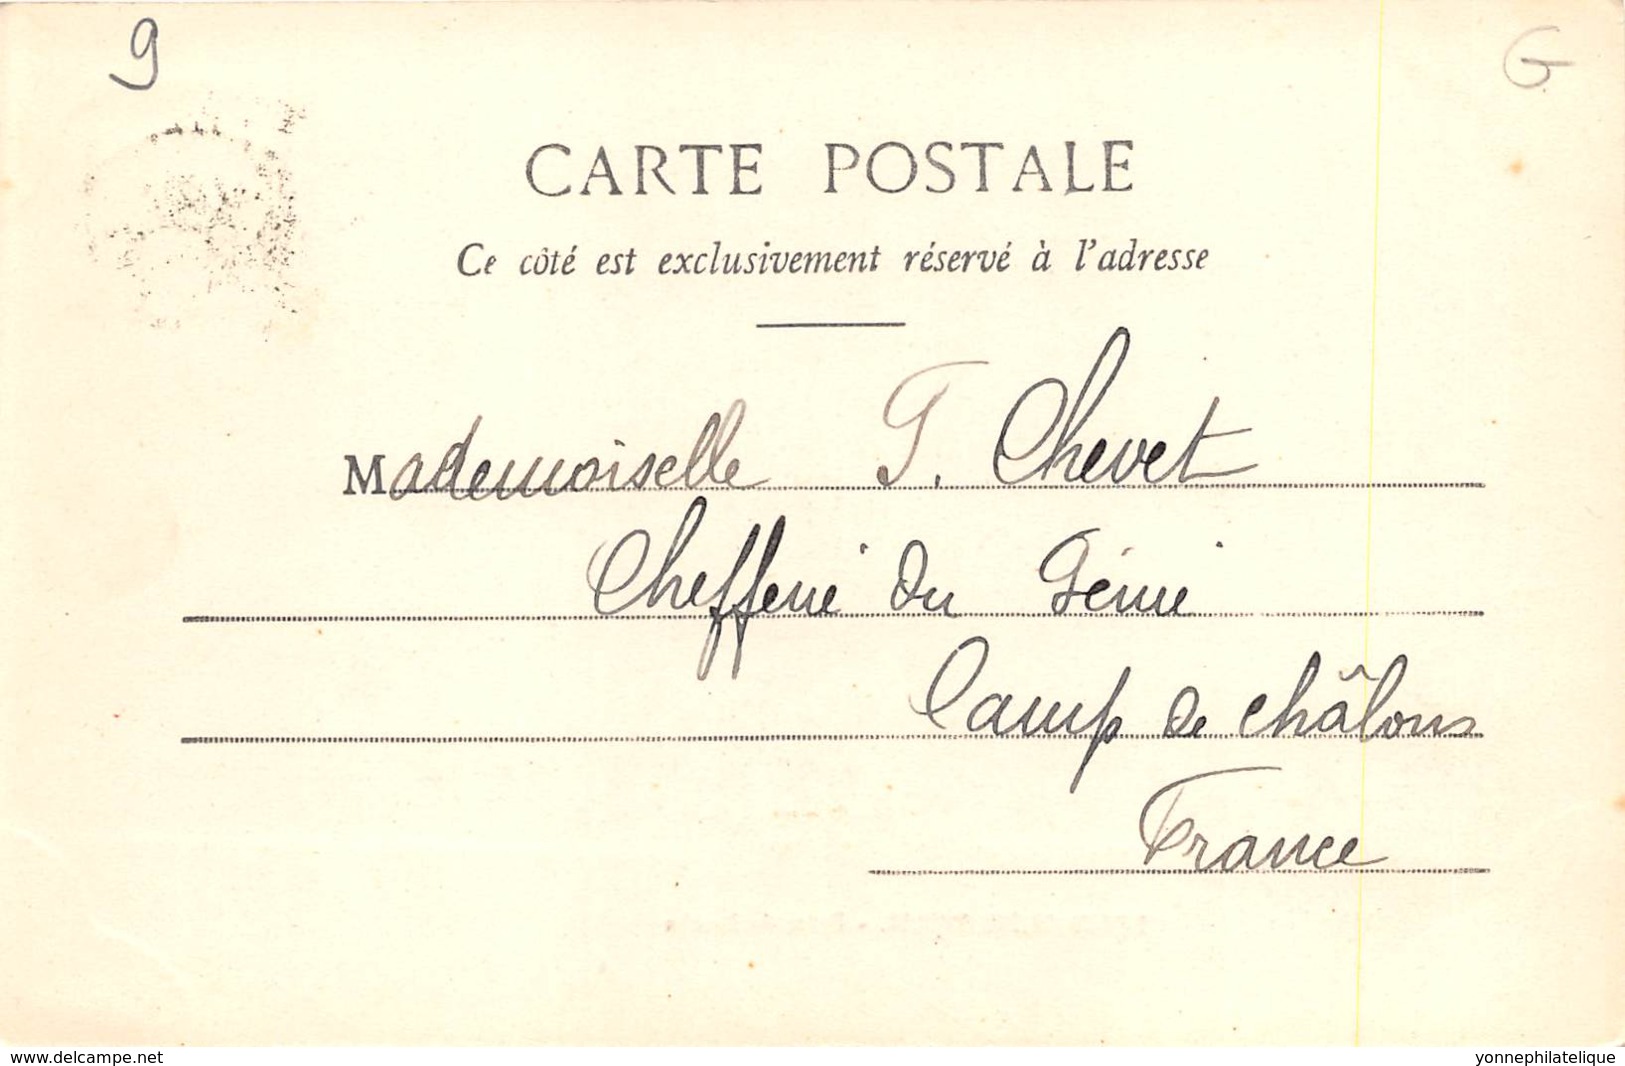 9
G
CARTE POSTALE
Ce côté est exclusivement réservé à l'adresse
Mademoiselle T. Chevet
Chefferie du Génie
Camp de Châlons
France
www.delcampe.net
yonnephilatelique